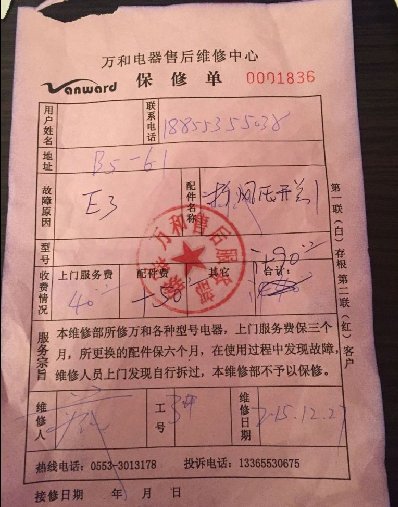 万和电器售后维修中心
Vanward 保修单 0001836
用户姓名 联系电话 18855355038
地址 B5-61
故障原因 E3 配件名称 风压开关1
型号
收费情况 上门服务费 配件费 其它 合计:
40 50 90
服务宗旨
本维修部所修万和各种型号电器,上门服务费保三个
月,所更换的配件保六个月,在使用过程中发现故障,
维修人员上门发现自行拆过,本维修部不予以保修。
维修人 工号 3# 维修日期 2015.12.27
热线电话:0553-3013178 投诉电话:13365530675
接修日期 年 月 日
第一联(白)存根 第二联(红)客户
万和售后服务